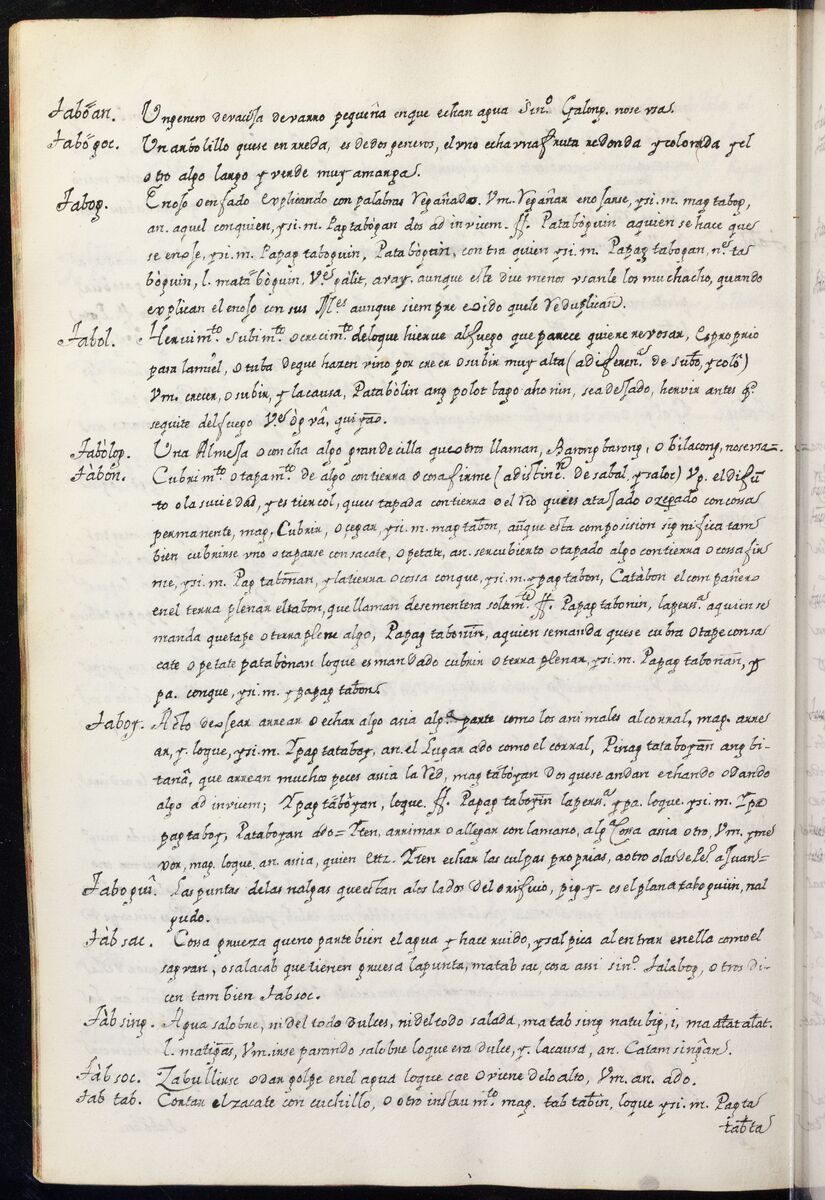 Tabóan. Un genero de vasija de varro pequeña en que echan agua Sin.º Galong. no se usa.
Tabógoc. Un arbolillo que se enrreda, es de dos generos, el uno echa una fruta redonda y colorada y el
otro algo largo y verde muy amarga.
Tabog. Enojo o enfado explicando con palabras Regañado. Vm. Regañar enojarse, y si. m. mag tabog,
an. aquel con quien, y si. m. Pag tabògan dos ad invicem. ff. Patabòguin a quien se hace que
se enoje, y si. m. Papag taboguin, Patabògan, contra quien y si. m. Papag tabogan, n.º ta
bòguin, l. matabòguin, V.e gàlit, avay. aunque este dice menos usanle los muchacho, quando
explican el enojo con sus M.es aunque siempre e oido que le reduplican.
Tabol. Hervim.to subim.to o crecim.to de lo que hierve al fuego que parece quiere revosar, es proprio
para la miel, o tuba de que hazen vino por crecer o subir muy alta (a diferen.a de subo, y colo)
Vm. crecer, o subir, y la causa, Patabòlin ang polot bago ahonin, sea dejado, hervir antes q.e
se quite del fuego V.e ògvâ, quiyao.
Tabòlog. Una Almeja o concha algo grandecilla que otros llaman, Barong barong, o bilacong, no se usa=
Tàbon. Cubrim.to o tapam.to de algo con tierra o cosa firme (a distinc.n de sabal, y saloc) Vg. el difũ
to o la suciedad, y estiercol, que es tapada con tierra o el Rio que es atajado o zegado con cossa
permanente, mag, Cubrir, o cegar, y si. m. mag tabon, aũque esta composision significa tam
bien cubrirse uno o taparse con sacate, o petate, an. ser cubierto o tapado algo con tierra o cossa fir
me, y si. m. Pag tabonan, y la tierra o cossa con que, y si. m. y pag tabon, Catàbon el compañero
en el terra plenar el tabon, que llaman de sementera solam.te ff. Papag tabonin, la pers.a a quien se
manda que tape o terraplene algo, Papag tabonin, a quien se manda que se cubra o tape con sa
cate o petate patabònan lo que es mandado cubrir o terra plenar, y si. m. Papag tabonan, y
pa. con que, y si. m. y papag tabon.
Taboy. Acto de ojear arrear o echar algo asia alg.a parte como los animales al corral, mag. arre
ar, y. lo que, y si. m. Ypag tataboy, an. el Lugar ado como el corral, Pinag tataboyan ang bi-
tanà, que arrean muchos peces assia la Red, mag tabòyan dos que se andan echando o dando
algo ad invicem; Ypag tabòyan, lo que. ff. Papag taboyin la pers.a y pa. lo que. y si. m. Ypa
pag taboy, Pataboyan ado= Yten, arrimar o allegar con la mano, alg.a Cosa assia otro, Vm. y me
Vor, mag. lo que. an. assia, quien ettz. Yten echar las culpas proprias, a otro o las de Pe.o a Juan=
Taboguî. Las puntas de las nalgas que estan a los lados del orificio, pig-y- es el plana taboguiin, nal
gudo.
Tàb sac. Cosa grueza que no parte bien el agua y hace ruido, y salpica al entrar en ella como el
sagvan, o salacab que tienen gruesa la punta, matab sac, cosa assi sin.º Talabog, otros di-
cen tambien Tabsoc.
Tàb sing. Agua salobre, ni del todo Dulces, ni del todo salada, matab sing na tubig, i, ma atat atat.
l. matigas, Vm. irse parando salobre lo que era dulce, y. la causa, an. Catam singan.
Tàb soc. Zabullirse o dar golpe en el agua lo que cae o viene de lo alto, Vm. an. ado.
Tab tab. Cortar el zacate con cuchillo, o otro instrum.to mag. tab tabin, lo que y si. m. Pag ta
tabta